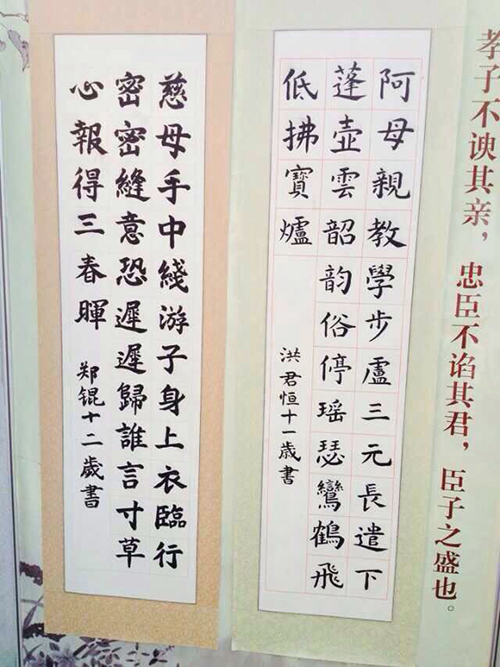 孝子不谀其亲，忠臣不谄其君，臣子之盛也。
阿母親教學步虛三元長遣下
蓬壺雲韶韵俗停瑶瑟鸞鶴飛
低拂寶爐
洪君恒十一歲書
慈母手中綫游子身上衣臨行
密密縫意恐遲遲歸誰言寸草
心報得三春暉
郑锟十二歲書